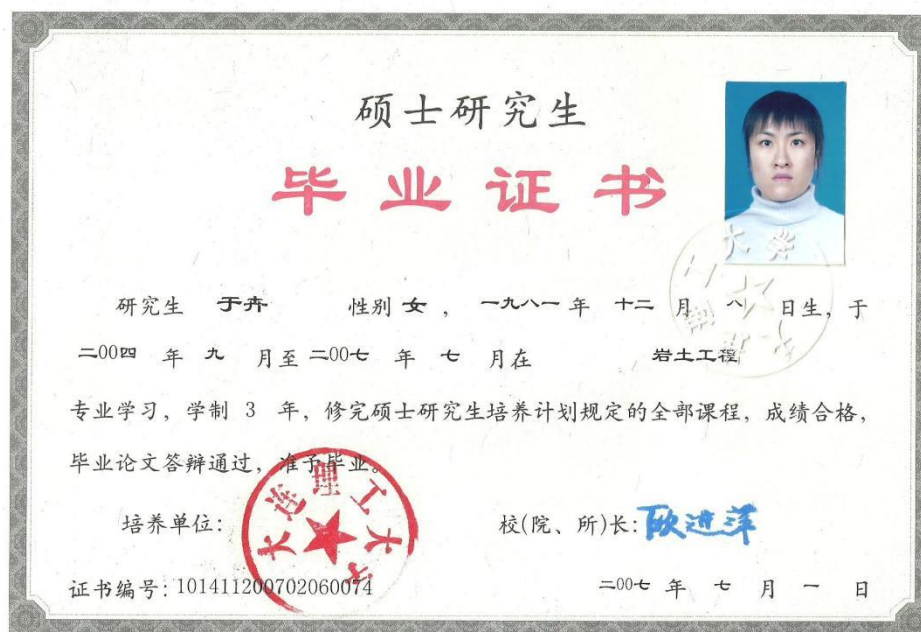 硕士研究生
毕业证书
研究生 于卉 性别 女 , 一九八一 年 十二 月 八 日生, 于
二00四 年 九 月至 二00七 年 七 月在 岩土工程
专业学习, 学制 3 年, 修完硕士研究生培养计划规定的全部课程, 成绩合格,
毕业论文答辩通过, 准予毕业。
培养单位: 大连理工大学
校(院、所)长: 欧进萍
证书编号: 101411200702060074
二00七 年 七 月 一 日